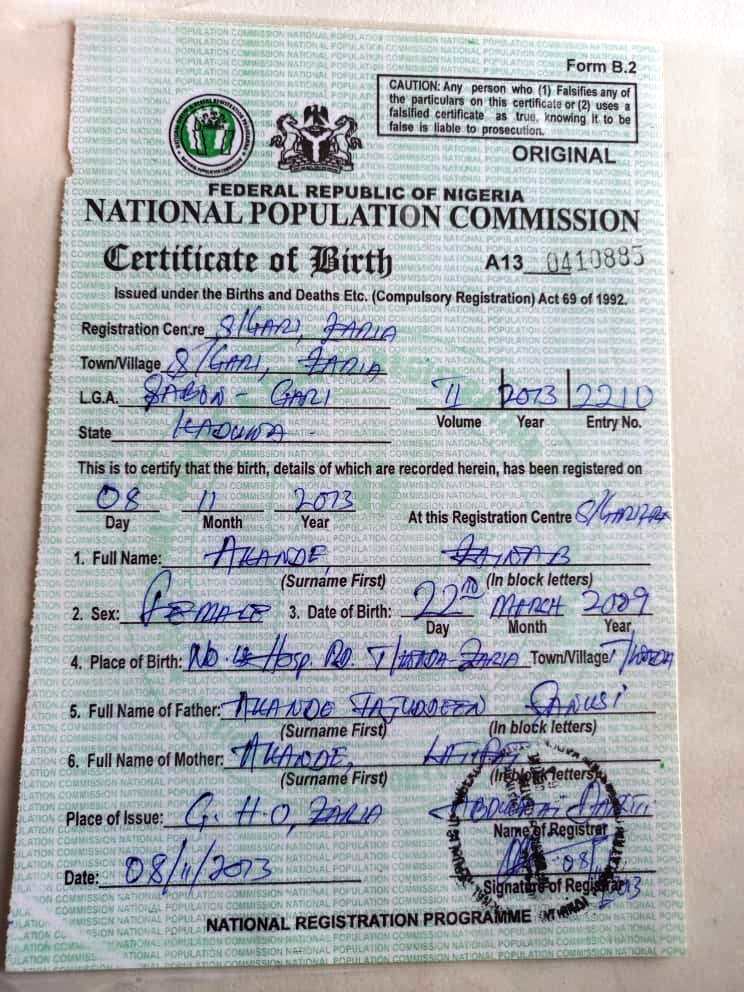 Form B.2
CAUTION: Any person who (1) Falsifies any of
the particulars on this certificate or (2) uses a
falsified certificate as true, knowing it to be
false is liable to prosecution.
ORIGINAL
FEDERAL REPUBLIC OF NIGERIA
NATIONAL POPULATION COMMISSION
Certificate of Birth A13 0410885
Issued under the Births and Deaths Etc. (Compulsory Registration) Act 69 of 1992.
Registration Centre S/GARI, ZARIA
Town/Village S/GARI, ZARIA
L.G.A. SABON-GARI 11 2013 2210
Volume Year Entry No.
State KADUNA
This is to certify that the birth, details of which are recorded herein, has been registered on
08 11 2013
Day Month Year At this Registration Centre S/GARI
1. Full Name: AKANDE, ZAINAB
(Surname First) (In block letters)
2. Sex: FEMALE 3. Date of Birth: 22ND MARCH 2009
Day Month Year
4. Place of Birth: NO. Hosp. RD. T/WADA-ZARIA Town/Village T/WADA
5. Full Name of Father: AKANDE TAJUDEEN SANUSI
(Surname First) (In block letters)
6. Full Name of Mother: AKANDE,
(Surname First) (In block letters)
Place of Issue: G.H.O, ZARIA
Name of Registrar
Date: 08/11/2013
Signature of Registrar
NATIONAL REGISTRATION PROGRAMME